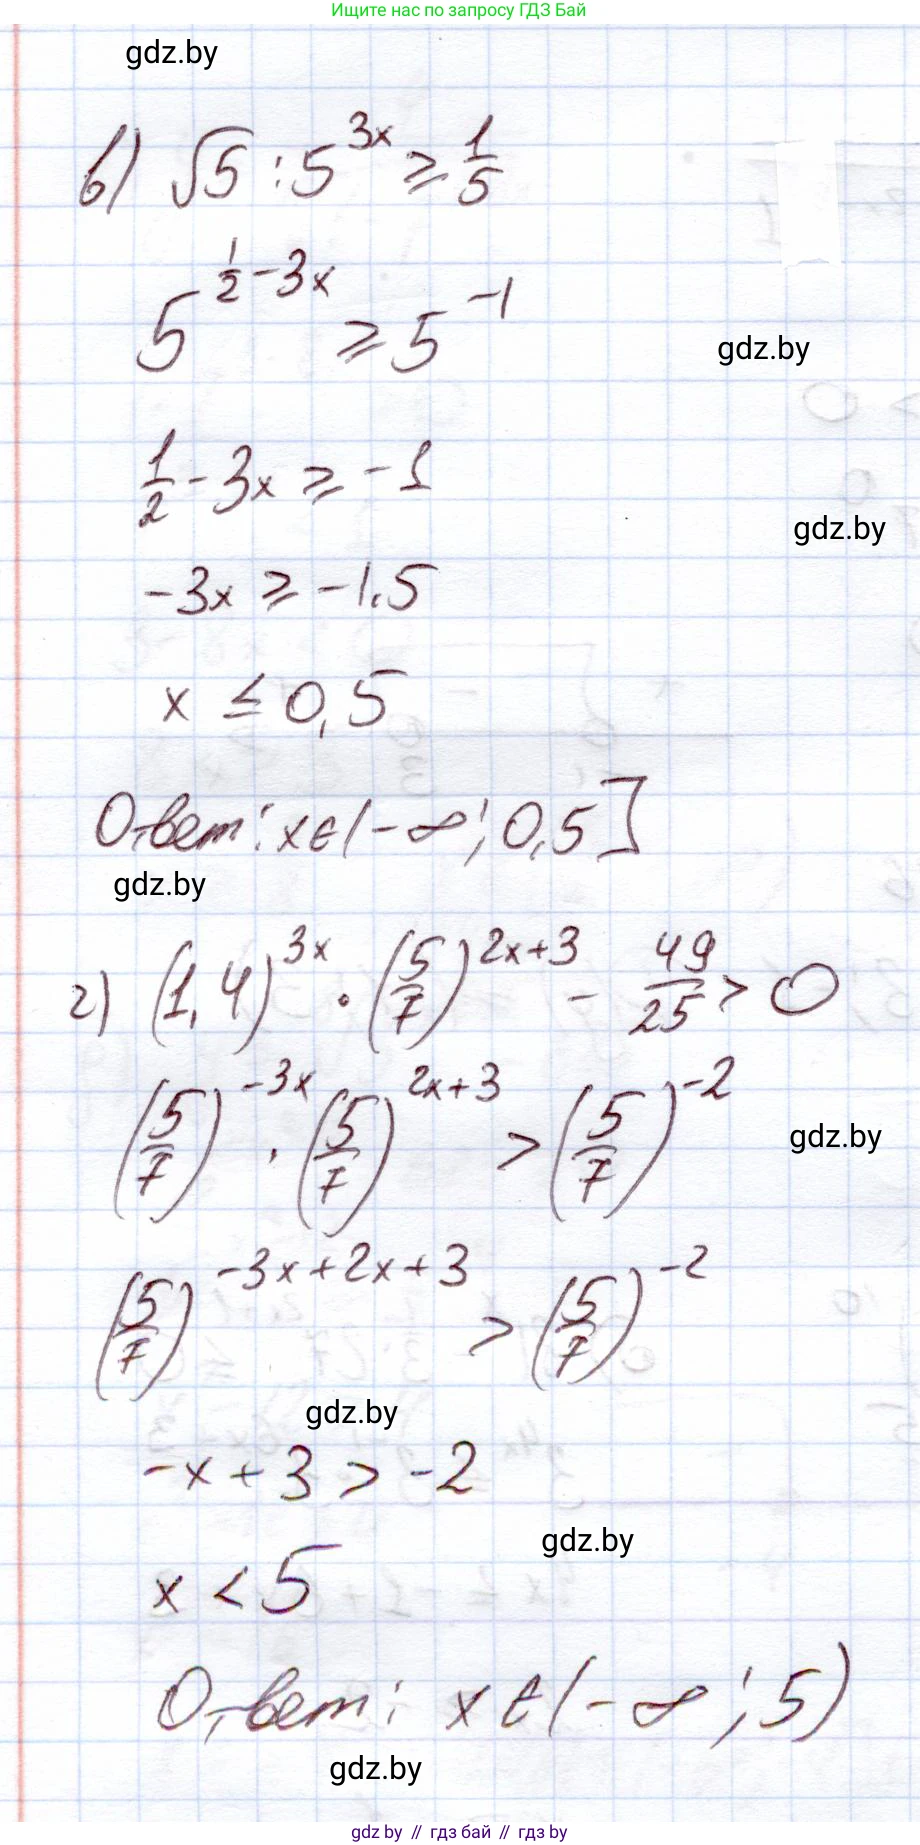 Ищите нас по запросу ГДЗ Бай
gdz.by
в) √5 : 5^(3x) ≥ 1/5
5^(1/2 - 3x) ≥ 5^(-1)
gdz.by
1/2 - 3x ≥ -1
gdz.by
-3x ≥ -1.5
x ≤ 0,5
Ответ: x ∈ (-∞; 0,5]
gdz.by
г) (1,4)^(3x) · (5/7)^(2x+3) - 49/25 > 0
(5/7)^(-3x) · (5/7)^(2x+3) > (5/7)^(-2)
gdz.by
(5/7)^(-3x+2x+3) > (5/7)^(-2)
gdz.by
-x + 3 > -2
gdz.by
x < 5
Ответ: x ∈ (-∞; 5)
gdz.by
gdz.by // гдз бай // гдз by